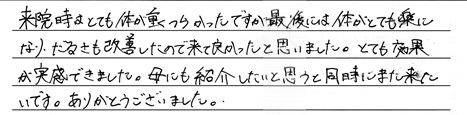 来院時はとても体が重くつらかったですが最後には体がとても楽に
なり、だるさも改善したので来て良かったと思いました。とても効果
が実感できました。母にも紹介したいと思うと同時にまた来た
いです。ありがとうございました。